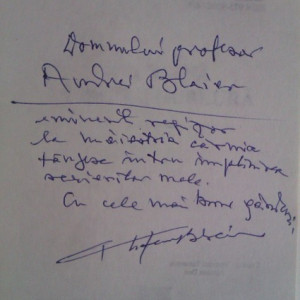 Domnului profesor
Andrei Blaier
eminent regizor
la măiestria căruia
tânjesc întru împlinirea
scrierilor mele.
Cu cele mai bune gânduri,